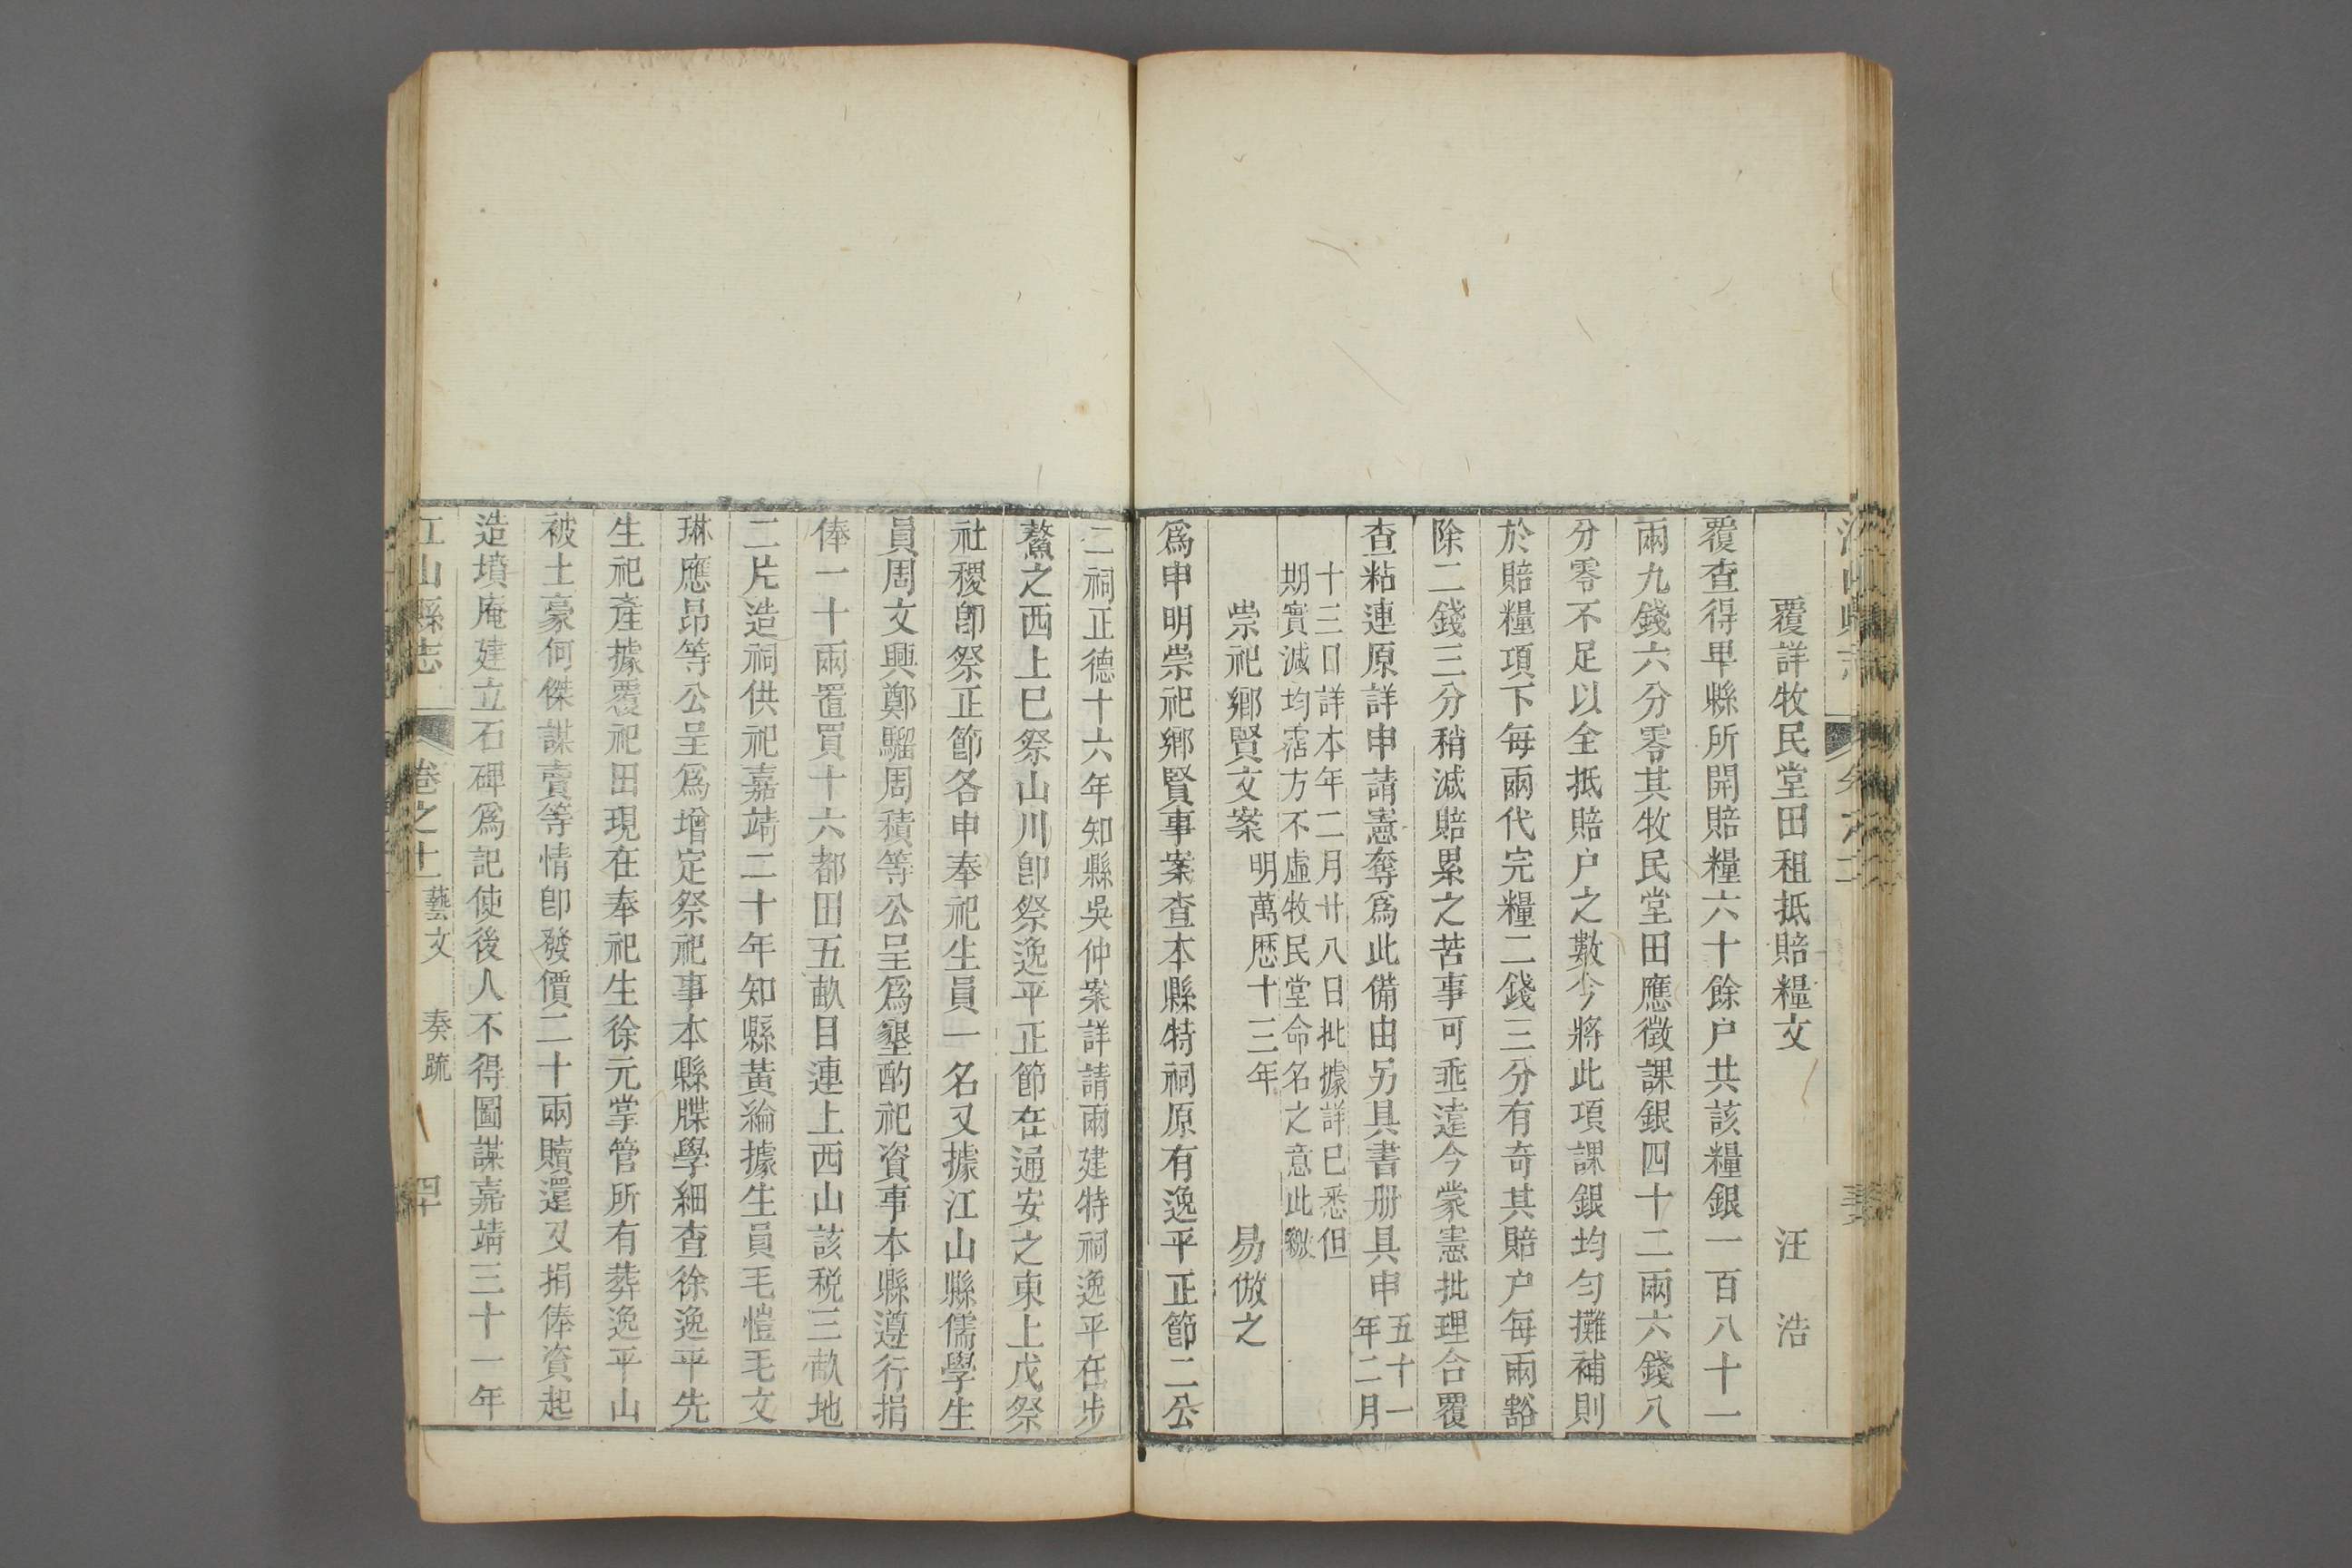 覆詳牧民堂田租抵賠糧文 汪浩
覆查得卑縣所開賠糧六十餘户共該糧銀一百八十一
兩九錢六分零其牧民堂田應徵課銀四十二兩六錢八
分零不足以全抵賠户之數今將此項課銀均勻攤補則
於賠糧項下每兩代完糧二錢三分有奇其賠户每兩豁
除二錢三分稍減賠累之苦事可垂遠今蒙憲批理合覆
查粘連原詳申請憲奪爲此備由另具書册具申五十一
年二月
十三日詳本年二月廿八日批據詳已悉但
期實減均霑方不虛牧民堂命名之意此繳
崇祀鄉賢文案明萬歷十三年 易倣之
爲申明崇祀鄉賢事案查本縣特祠原有逸平正節二公
二祠正德十六年知縣吳仲案詳請兩建特祠逸平在步
鰲之西上巳祭山川卽祭逸平正節在通安之東上戊祭
社稷卽祭正節各申奉祀生員一名又據江山縣儒學生
員周文興鄭騮周積等公呈爲墾酌祀資事本縣遵行捐
俸一十兩置買十六都田五畝日連上西山該税三畝地
二片造祠供祀嘉靖二十年知縣黃綸據生員毛愷毛文
琳應昂等公呈爲增定祭祀事本縣牒學細查徐逸平先
生祀產據覆祀田現在奉祀生徐元掌管所有葬逸平山
被土豪何傑謀賣等情卽發價二十兩贖還又捐俸資起
造墳庵建立石碑爲記使後人不得圖謀嘉靖三十一年
江山縣志 卷之十一 藝文 奏疏 四十